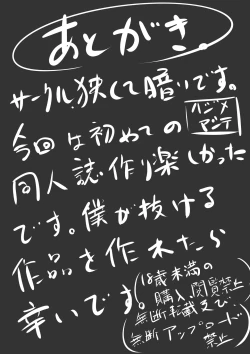 あとがき
サークル狭くて暗いです。
今回は初めての
ハジメ
マシテ
同人誌作り楽しかった
です。僕が抜ける
作品を作れたら
幸いです。
18歳未満の
購入、閲覧禁止
無断転載及び
無断アップロード
禁止